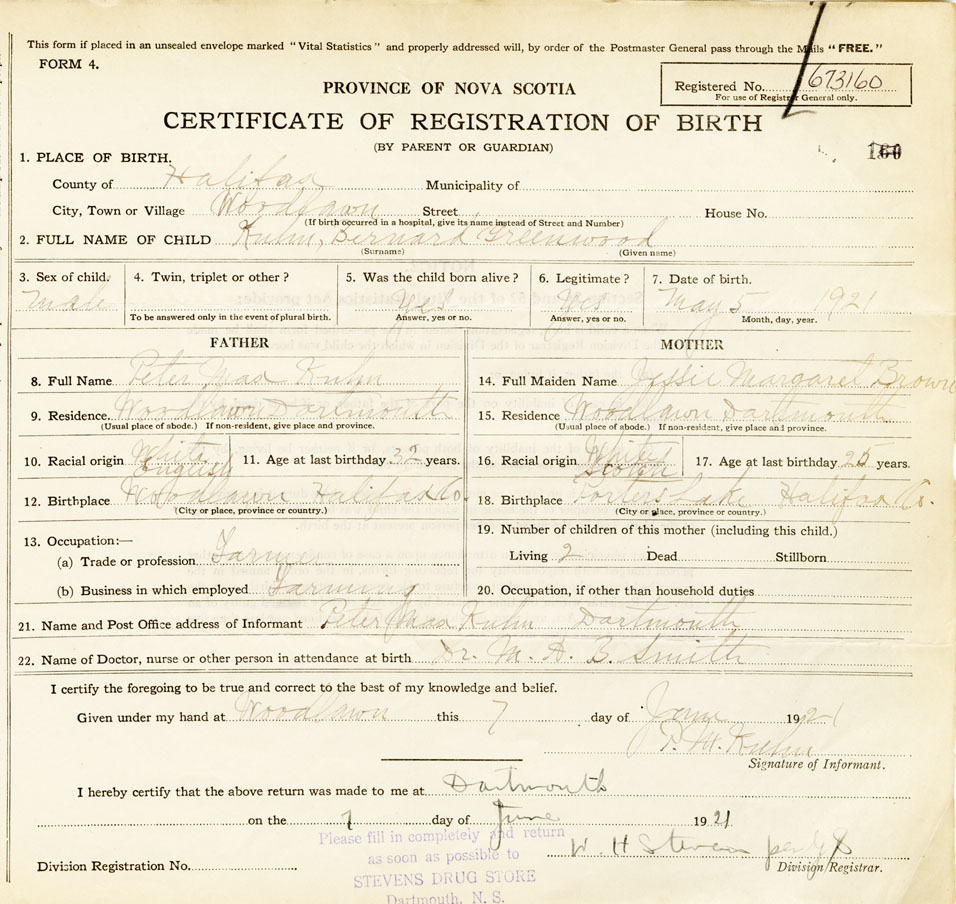 This form if placed in an unsealed envelope marked "Vital Statistics" and properly addressed will, by order of the Postmaster General pass through the Mails "FREE."
FORM 4.
Registered No. 673160
For use of Registrar General only.
PROVINCE OF NOVA SCOTIA
CERTIFICATE OF REGISTRATION OF BIRTH
(BY PARENT OR GUARDIAN)
160
1. PLACE OF BIRTH.
County of Halifax Municipality of
City, Town or Village Woodlawn Street House No.
(If birth occurred in a hospital, give its name instead of Street and Number)
2. FULL NAME OF CHILD Kuhn, Bernard Greenwood
(Surname) (Given name)
3. Sex of child. 4. Twin, triplet or other? 5. Was the child born alive? 6. Legitimate? 7. Date of birth.
Male Yes Yes May 5 1921
To be answered only in the event of plural birth. Answer, yes or no. Answer, yes or no. Month, day, year.
FATHER
8. Full Name Peter Max Kuhn
9. Residence Woodlawn Dartmouth
(Usual place of abode.) If non-resident, give place and province.
10. Racial origin White English 11. Age at last birthday 32 years.
12. Birthplace Woodlawn Halifax Co.
(City or place, province or country.)
13. Occupation:—
(a) Trade or profession Farmer
(b) Business in which employed Farming
MOTHER
14. Full Maiden Name Jessie Margaret Brown
15. Residence Woodlawn Dartmouth
(Usual place of abode.) If non-resident, give place and province.
16. Racial origin White Scotch 17. Age at last birthday 25 years.
18. Birthplace Porters Lake Halifax Co.
(City or place, province or country.)
19. Number of children of this mother (including this child.)
Living 2 Dead Stillborn
20. Occupation, if other than household duties
21. Name and Post Office address of Informant Peter Max Kuhn Dartmouth
22. Name of Doctor, nurse or other person in attendance at birth Dr. M. A. B. Smith
I certify the foregoing to be true and correct to the best of my knowledge and belief.
Given under my hand at Woodlawn this 7 day of June 1921
P. M. Kuhn
Signature of Informant.
I hereby certify that the above return was made to me at Dartmouth
on the 7 day of June 1921
Please fill in completely and return
as soon as possible to
STEVENS DRUG STORE
Dartmouth, N. S.
W. H Stevens
Division Registration No. Division Registrar.